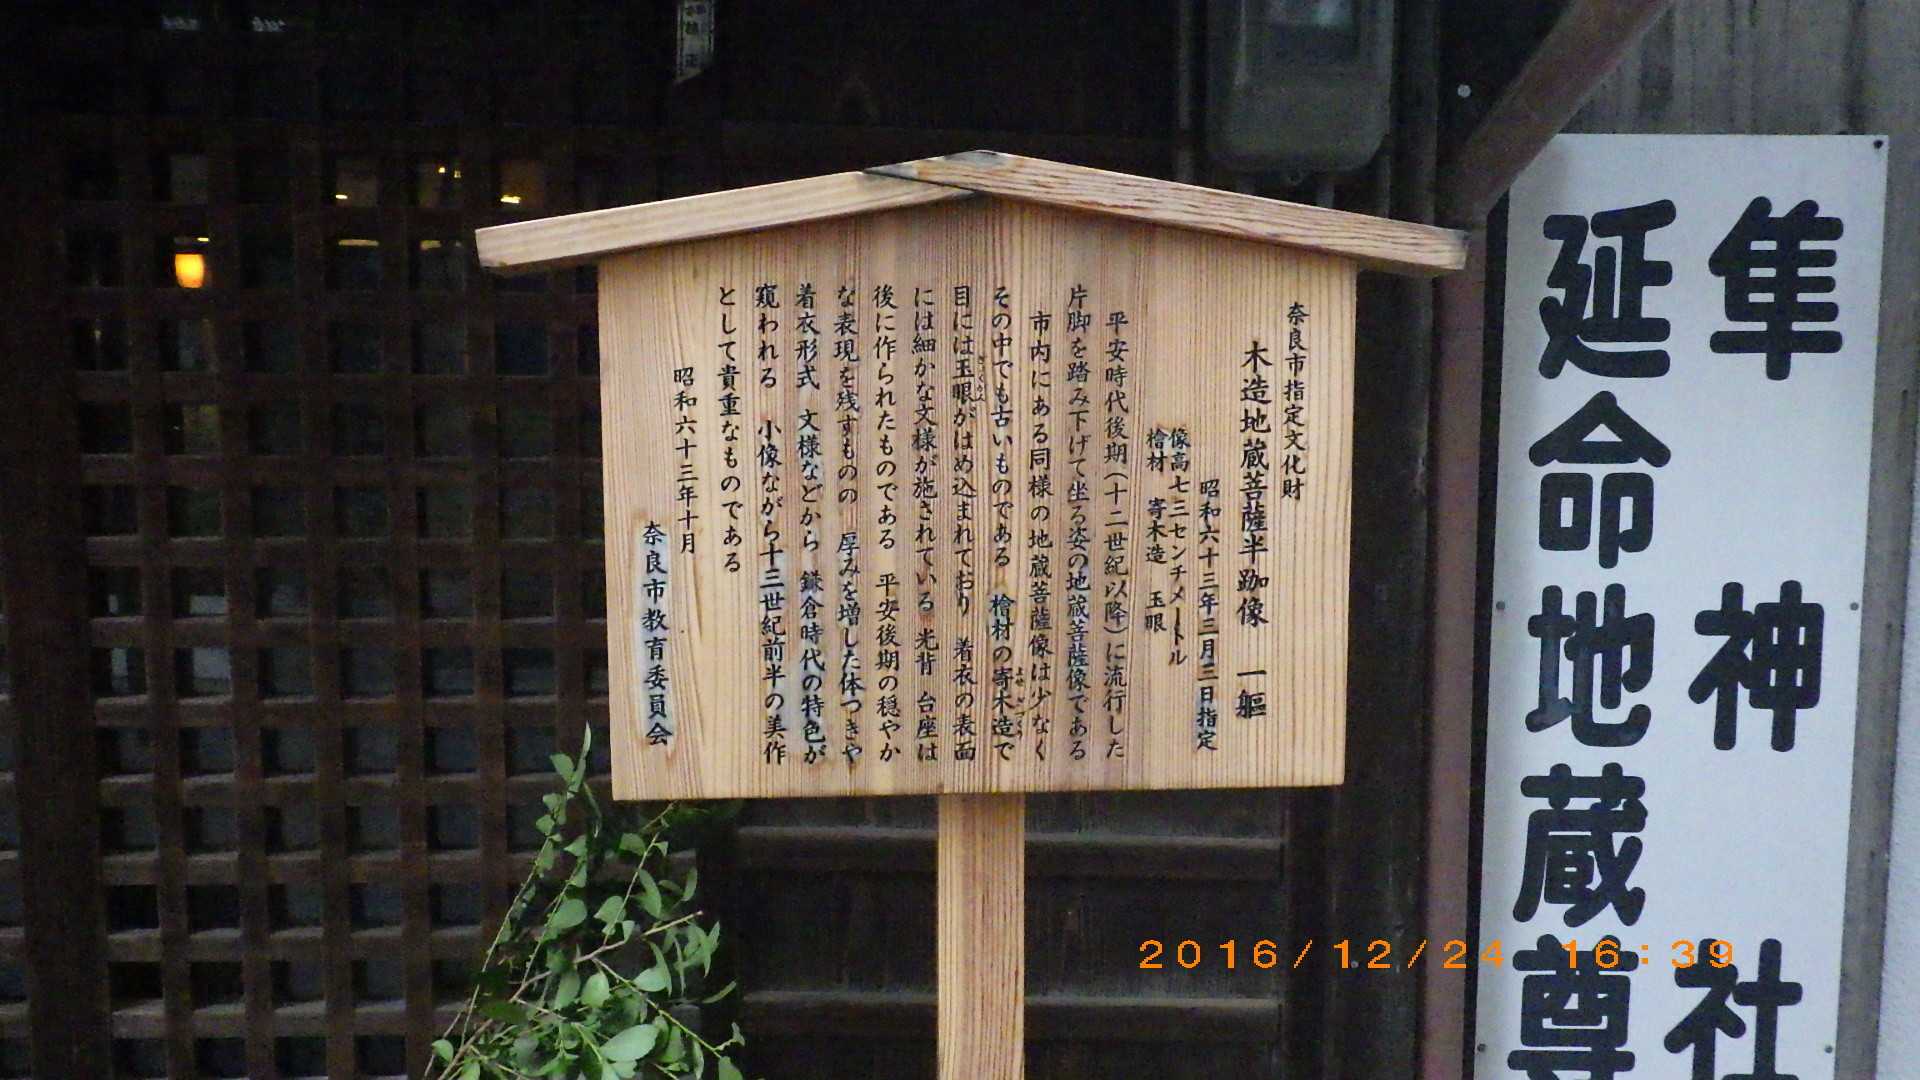 隼神社
延命地蔵尊
奈良市指定文化財
木造地蔵菩薩半跏像 一軀
昭和六十三年三月三日指定
像高七三センチメートル
檜材 寄木造 玉眼
平安時代後期(十二世紀以降)に流行した
片脚を踏み下げて坐る姿の地蔵菩薩像である
市内にある同様の地蔵菩薩像は少なく
その中でも古いものである 檜材の寄木造で
目には玉眼がはめ込まれており 着衣の表面
には細かな文様が施されている 光背 台座は
後に作られたものである 平安後期の穏やか
な表現を残すものの 厚みを増した体つきや
着衣形式 文様などから 鎌倉時代の特色が
窺われる 小像ながら十三世紀前半の美作
として貴重なものである
昭和六十三年十月
奈良市教育委員会
2016/12/24 16:39